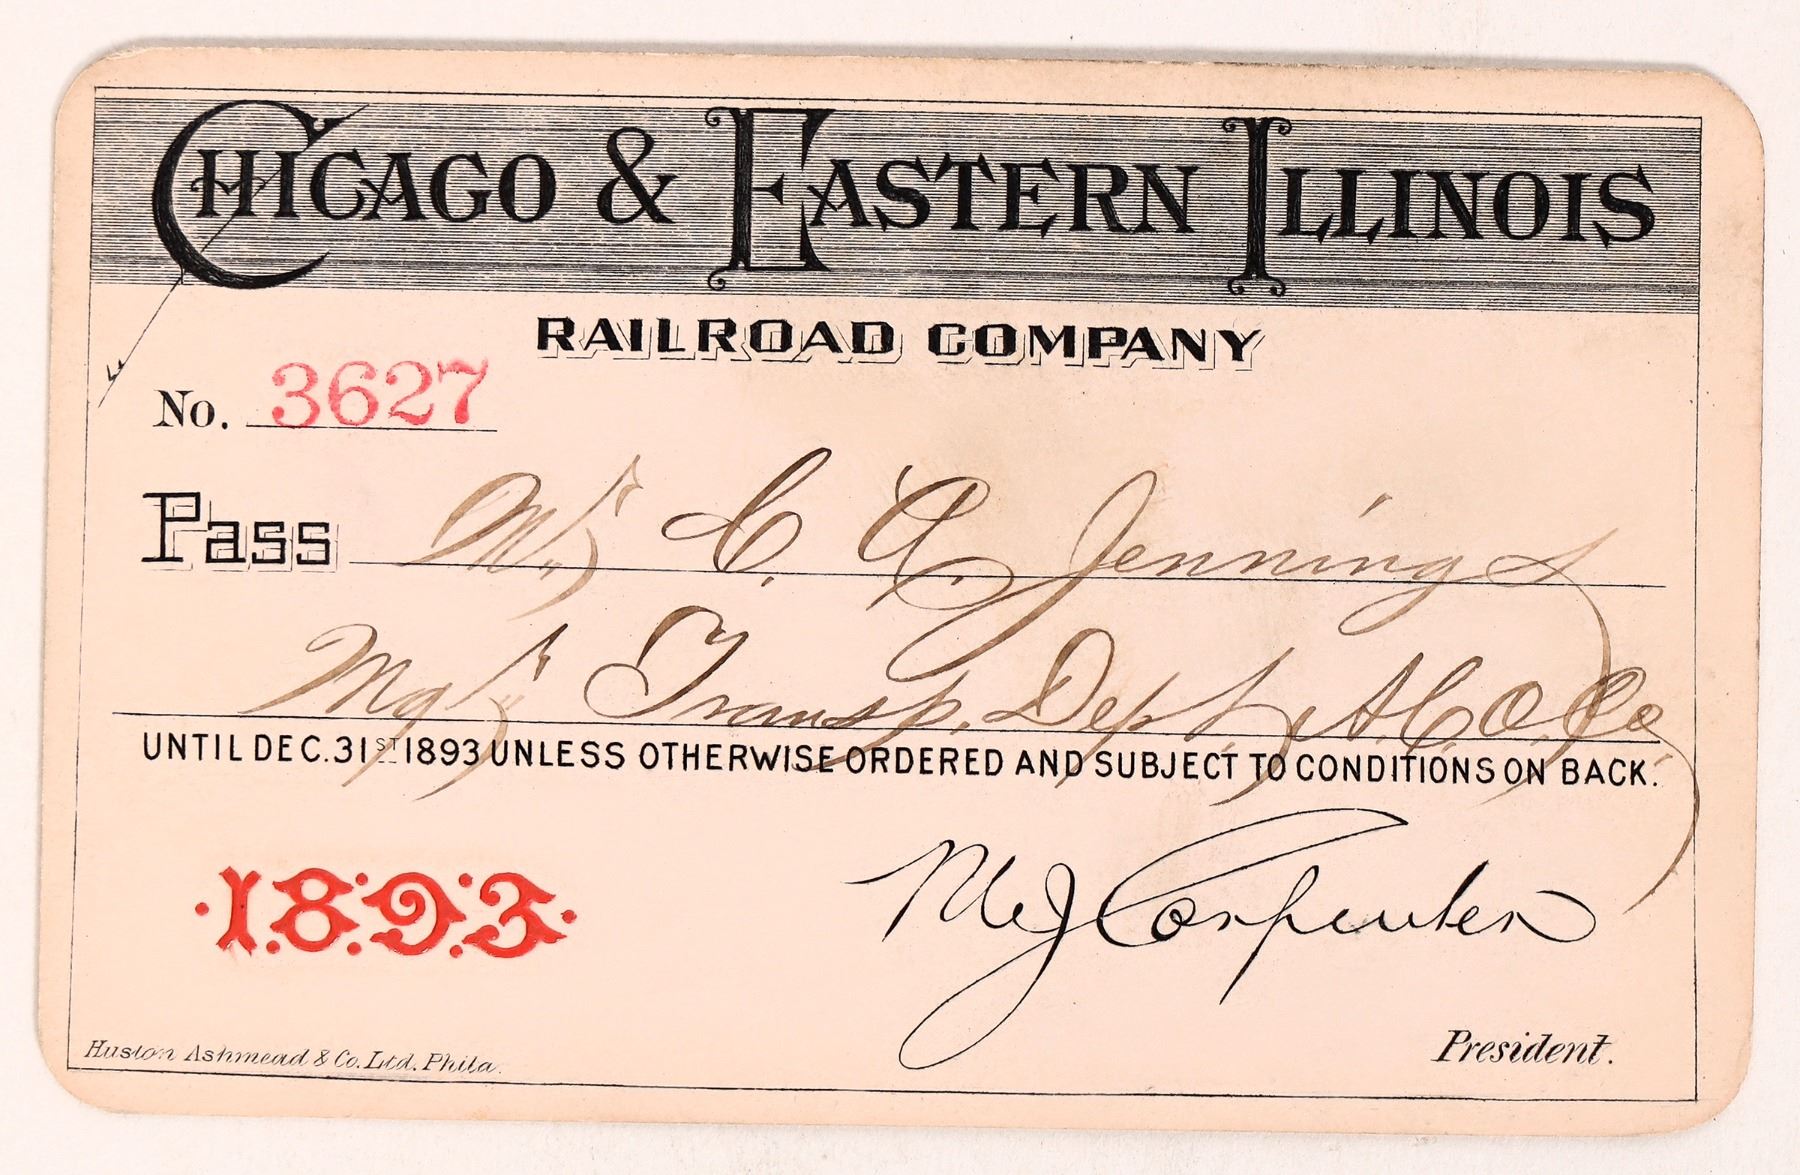 CHICAGO & EASTERN ILLINOIS
RAILROAD COMPANY
No. 3627
Pass Mr. C. A. Jennings
Mgr. Transp. Dept. A.C.O. Co.
UNTIL DEC. 31ST 1893 UNLESS OTHERWISE ORDERED AND SUBJECT TO CONDITIONS ON BACK.
·1.8.9.3·
M J Carpenter
President.
Huston Ashmead & Co. Ltd. Phila.